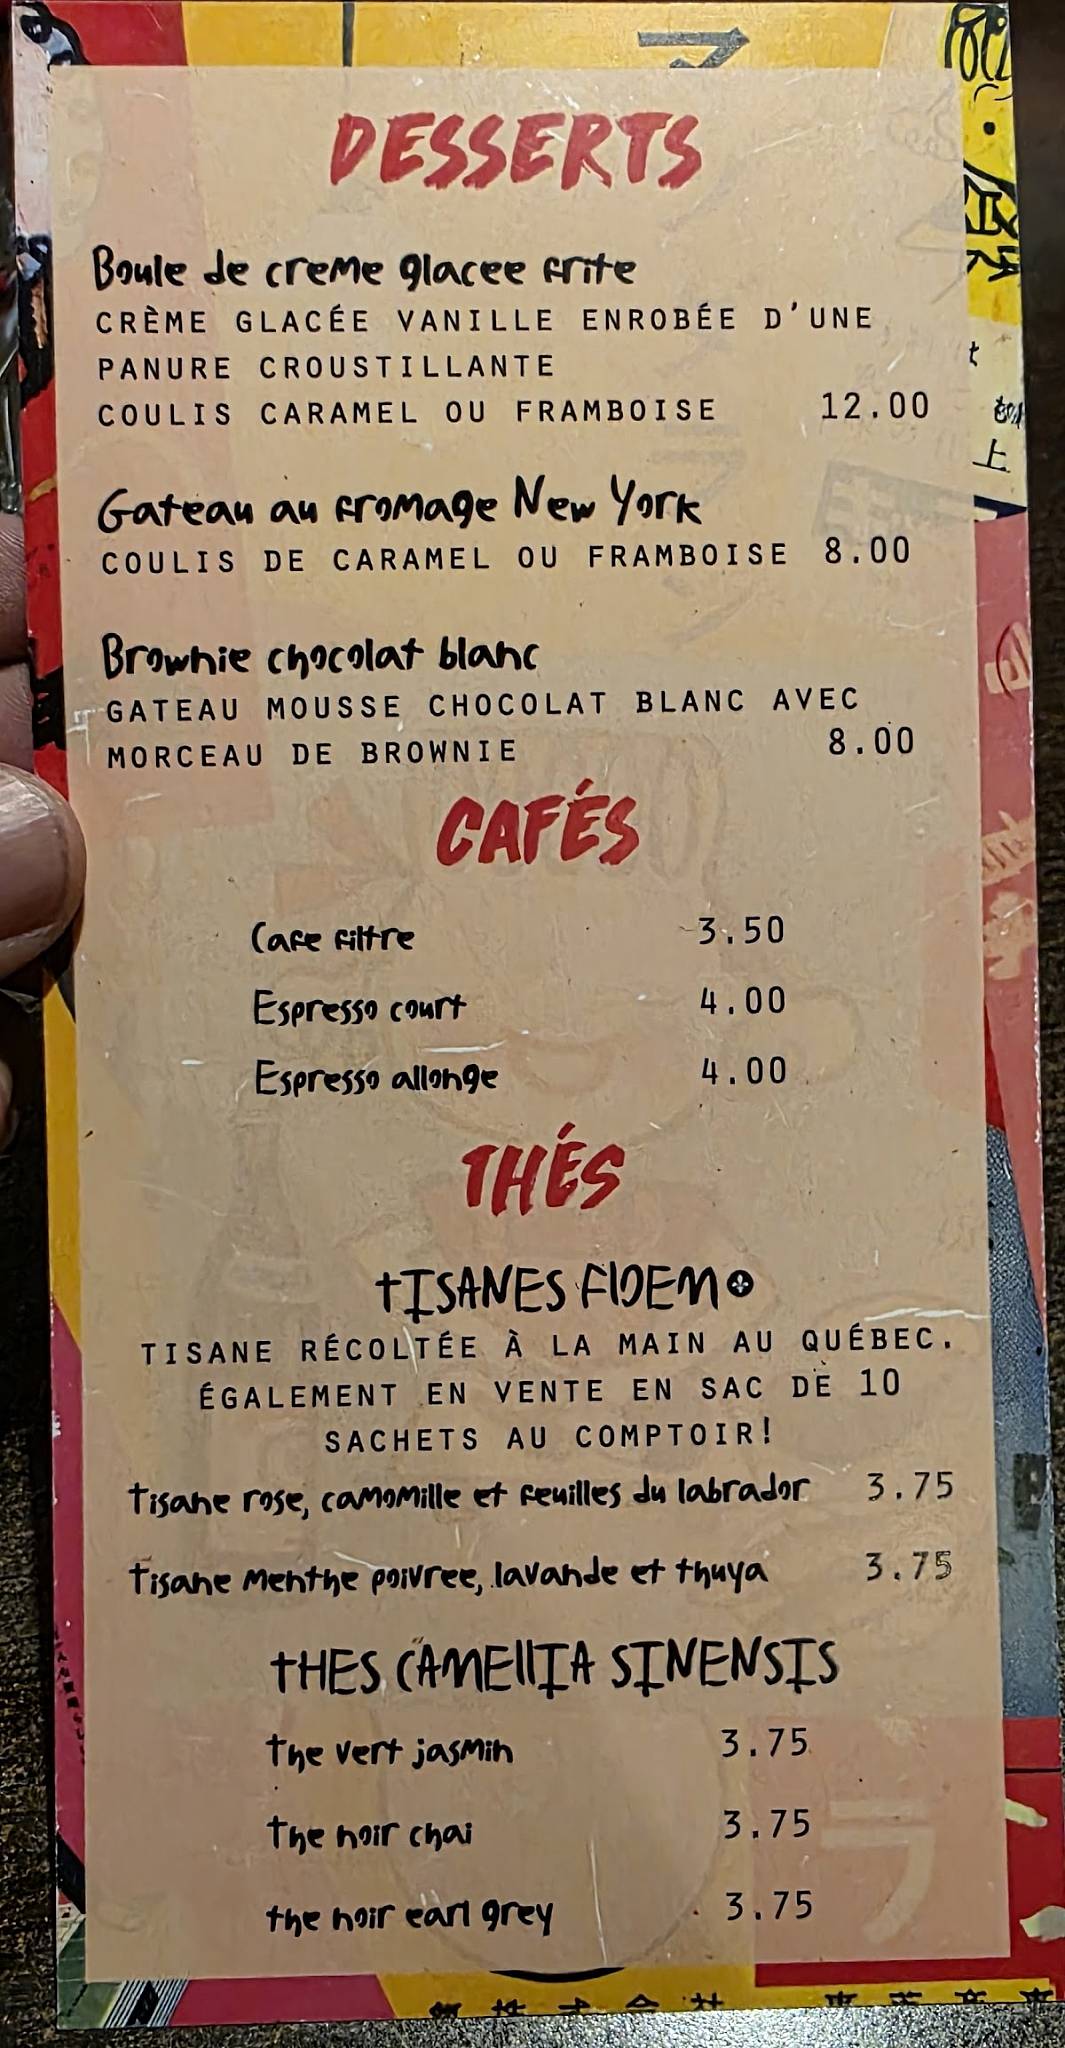 DESSERTS
Boule de creme glacee frite
CRÈME GLACÉE VANILLE ENROBÉE D'UNE
PANURE CROUSTILLANTE
COULIS CARAMEL OU FRAMBOISE 12.00
Gateau au fromage New York
COULIS DE CARAMEL OU FRAMBOISE 8.00
Brownie chocolat blanc
GATEAU MOUSSE CHOCOLAT BLANC AVEC
MORCEAU DE BROWNIE 8.00
CAFÉS
Cafe filtre 3.50
Espresso court 4.00
Espresso allonge 4.00
THÉS
TISANES FIDEM
TISANE RÉCOLTÉE À LA MAIN AU QUÉBEC.
ÉGALEMENT EN VENTE EN SAC DE 10
SACHETS AU COMPTOIR!
Tisane rose, camomille et feuilles du labrador 3.75
Tisane menthe poivree, lavande et thuya 3.75
THES CAMELLIA SINENSIS
The vert jasmin 3.75
The noir chai 3.75
the noir earl grey 3.75